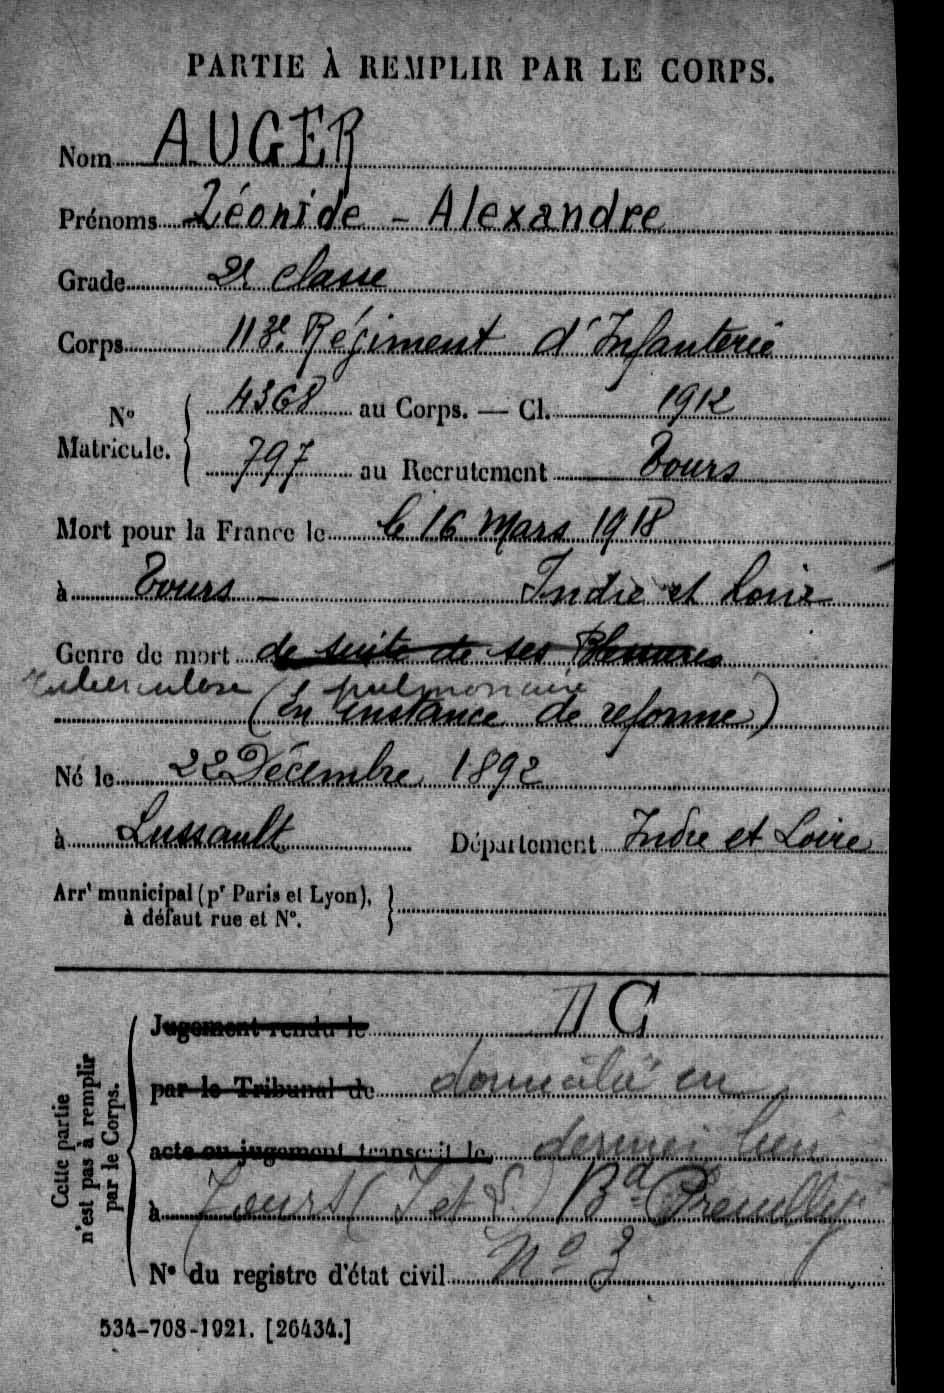 PARTIE À REMPLIR PAR LE CORPS.
Nom AUGER
Prénoms Léonide - Alexandre
Grade 2e classe
Corps 113e Régiment d'Infanterie
N° Matricule. { 4368 au Corps. — Cl. 1912
797 au Recrutement Tours
Mort pour la France le le 16 Mars 1918
à Tours - Indre et Loire
Genre de mort de suite de ses Blessures
Tuberculose pulmonaire
(En instance de reforme)
Né le 22 Décembre 1892
à Lussault Département Indre et Loire
Arrt municipal (pr Paris et Lyon), }
à défaut rue et N°.
Cette partie
n'est pas à remplir
par le Corps.
Jugement rendu le
par le Tribunal de domicilié en
acte ou jugement transcrit le dernier lieu
à Tours (I et L.) Bd Preuilly
N° du registre d'état civil N° 3
534-708-1921. [26434.]